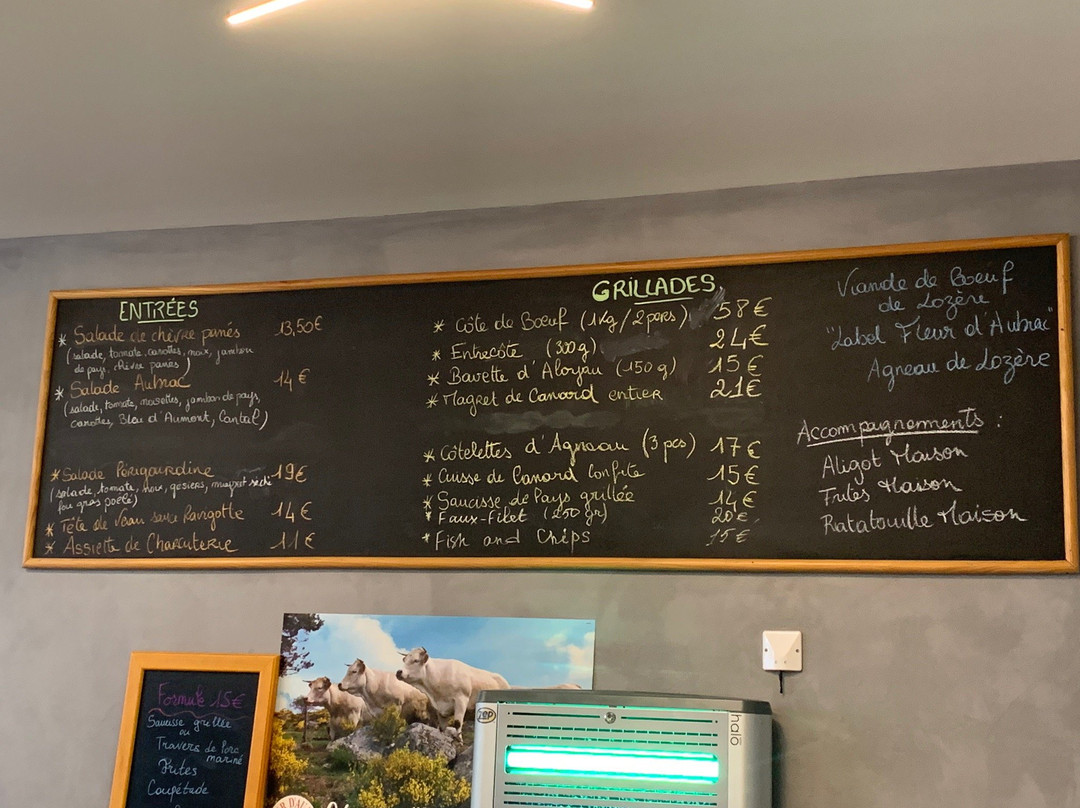 ENTRÉES
* Salade de chèvre panés 13,50€
(salade, tomate, carottes, noix, jambon
de pays, chèvre panés)
* Salade Aubrac 14€
(salade, tomate, noisettes, jambon de pays,
carottes, Bleu d'Aumont, Cantal)
* Salade Périgourdine 19€
(salade, tomate, noix, gésiers, magret séché
fou gras poêlé)
* Tête de Veau sauce Ravigotte 14€
* Assiette de Charcuterie 11€
GRILLADES
* Côte de Boeuf (1kg/2pers) 58€
* Entrecôte (300g) 24€
* Bavette d'Aloyau (150g) 15€
* Magret de Canard entier 21€
* Côtelettes d'Agneau (3 pcs) 17€
* Cuisse de Canard Confite 15€
* Saucisse de Pays grillée 14€
* Faux-Filet (250 gr) 20€
* Fish and Chips 15€
Viande de Boeuf
de Lozère
"Label Fleur d'Aubrac"
Agneau de Lozère
Accompagnements :
Aligot Maison
Frites Maison
Ratatouille Maison
Formule 15€
Saucisse grillée
ou
Travers de Porc
mariné
Frites
Coupétade
halo